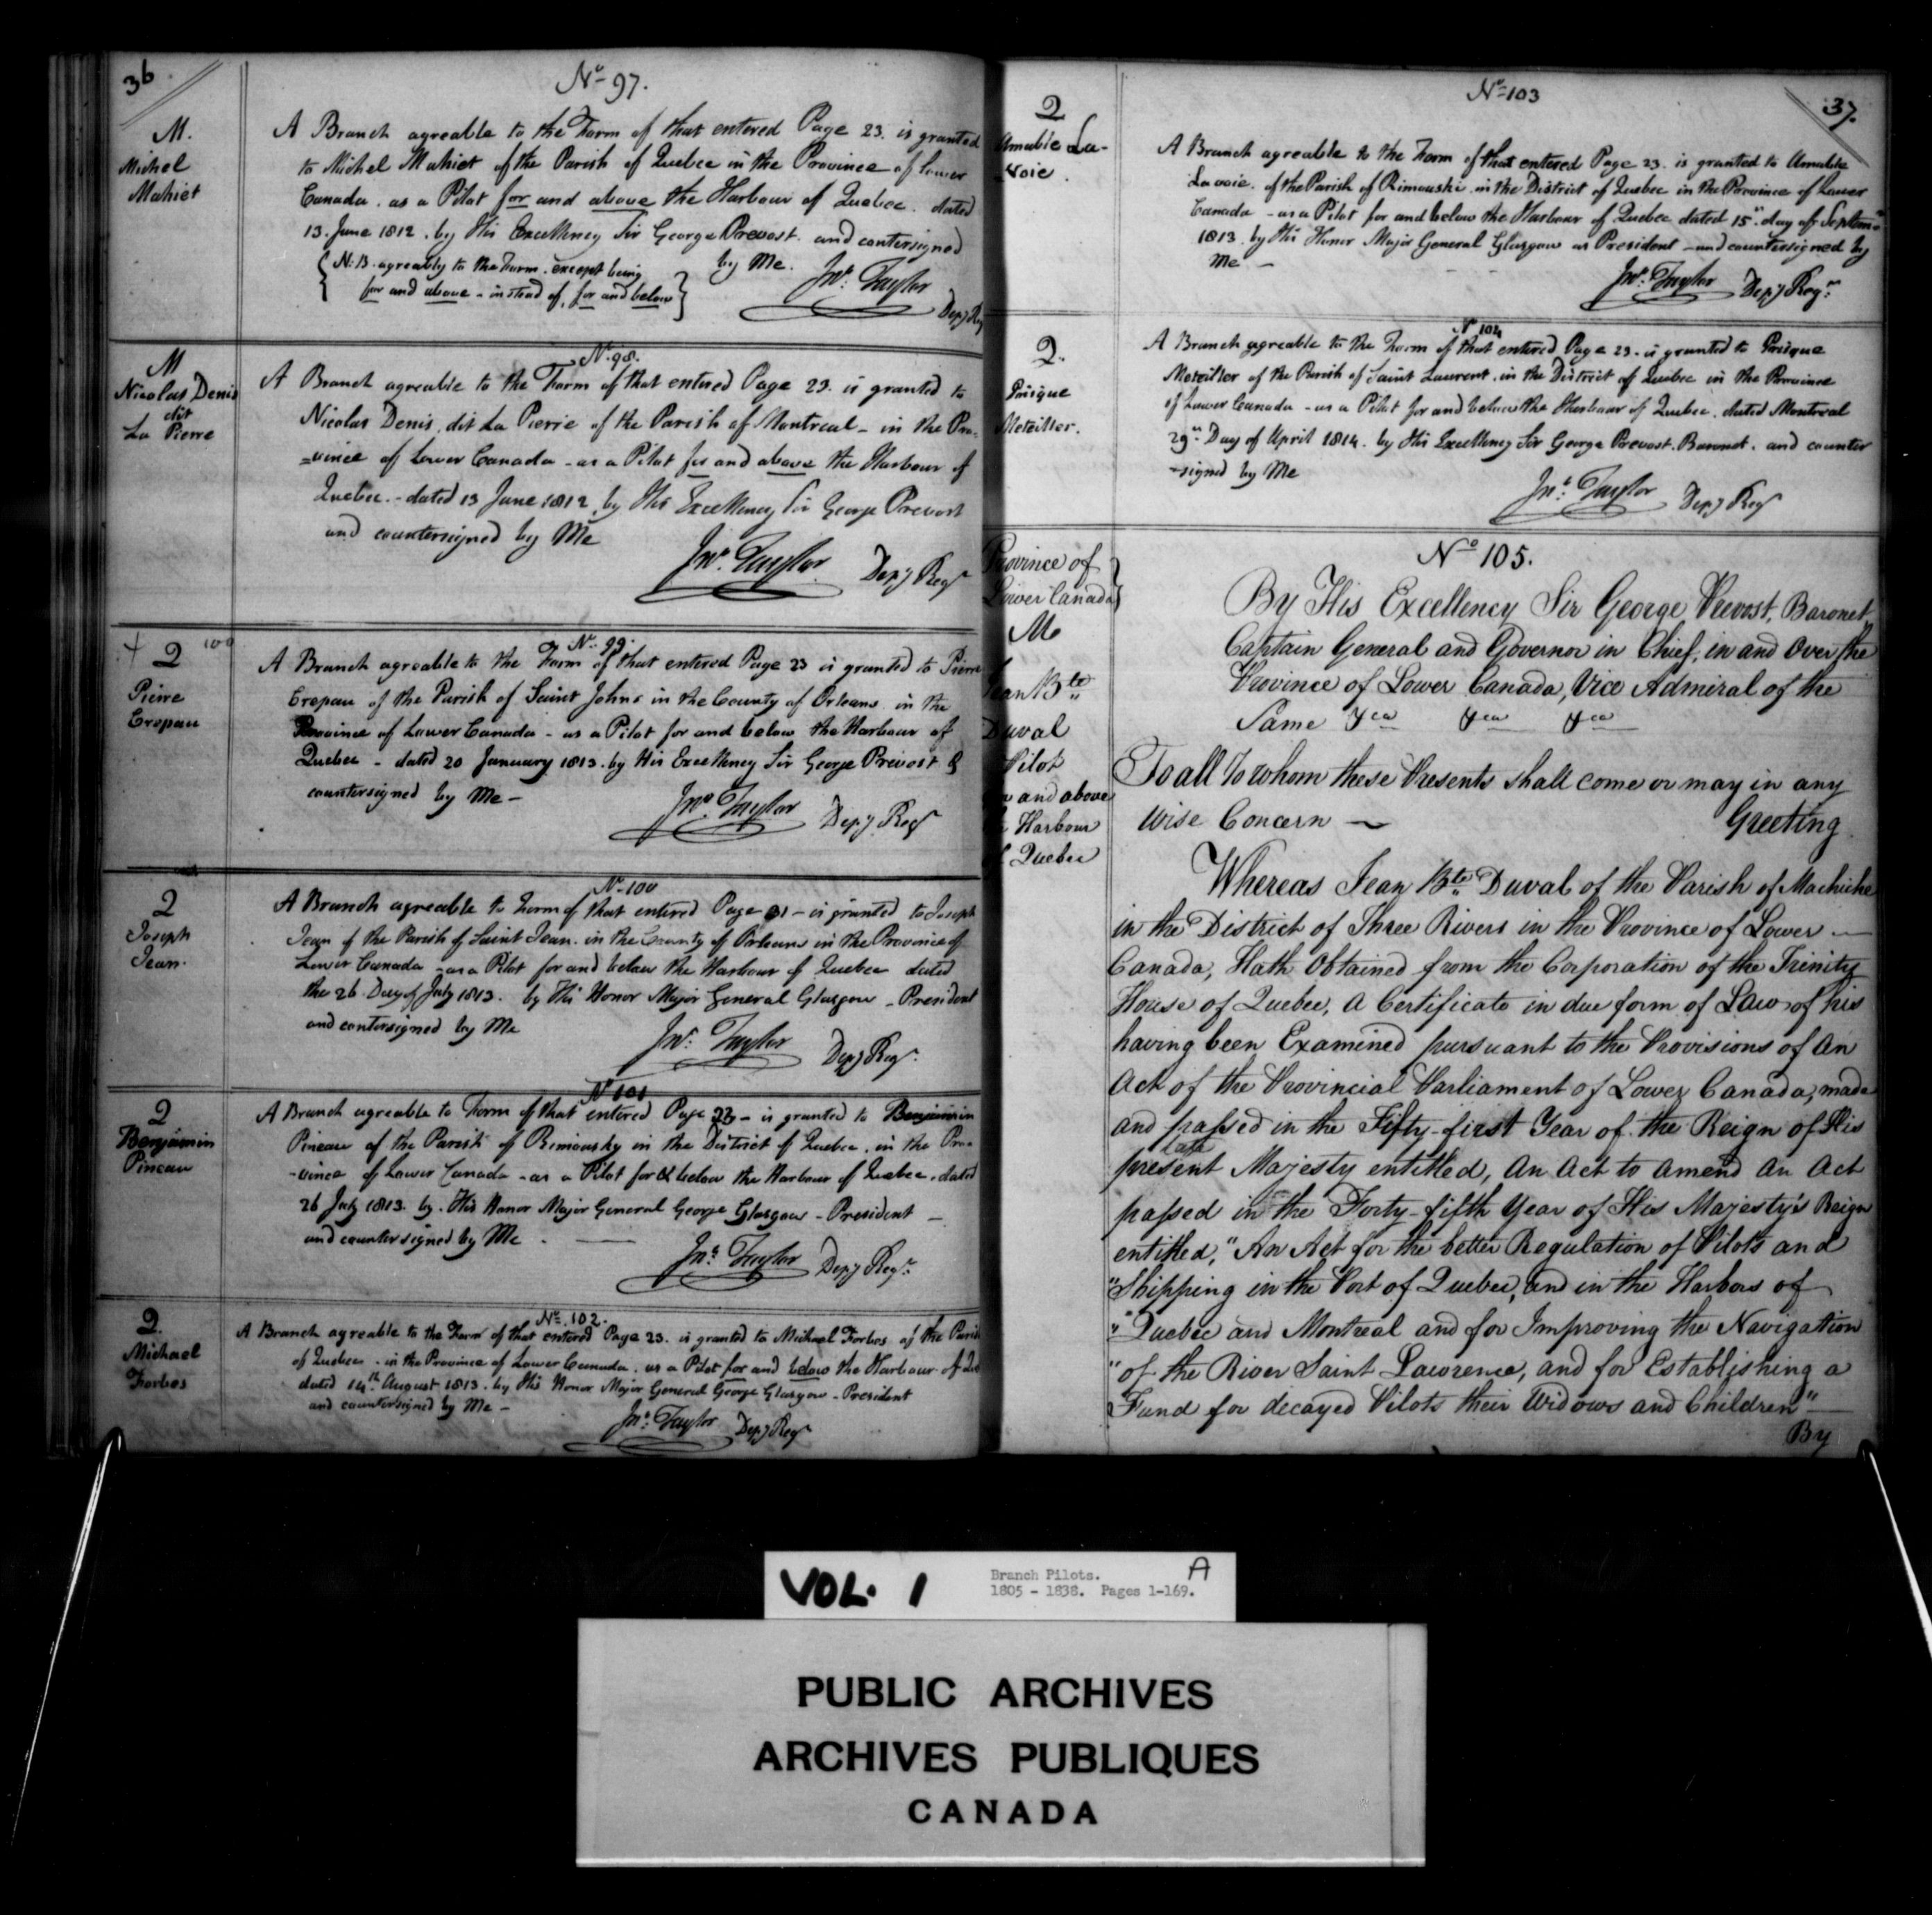 36
No 97.
M.
Michel
Mahiet
A Branch agreable to the Form of that entered Page 23. is granted
to Michel Mahiet of the Parish of Quebec in the Province of Lower
Canada. as a Pilot for and above the Harbour of Quebec. dated
13. June 1812. by His Excellency Sir George Prevost. and contersigned
by Me.
{N.B. agreably to the Form. except being
for and above - instead of, for and below}
Jno. Taylor
Depy Reg
No. 98.
M
Nicolas Denis
dit
La Pierre
A Branch agreable to the Form of that entered Page 23. is granted to
Nicolas Denis, dit La Pierre of the Parish of Montreal - in the Pro=
=vince of Lower Canada - as a Pilot for and above the Harbour of
Quebec. - dated 13 June 1812, by His Excellency Sir George Prevost
and countersigned by Me
Jno. Taylor Depy Regr
No. 99.
+ 2 100
Pierre
Crepau
A Branch agreable to the Form of that entered Page 23 is granted to Pierre
Crepau of the Parish of Saint Johns in the County of Orleans in the
Province of Lower Canada - as a Pilot for and below the Harbour of
Quebec - dated 20 January 1813. by His Excellency Sir George Prevost &
countersigned by Me -
Jno. Taylor Depy. Regr
No. 100
2
Joseph
Jean.
A Branch agreable to Form of that entered Page 31 - is granted to Joseph
Jean of the Parish of Saint Jean. in the County of Orleans in the Province of
Lower Canada - as a Pilot for and below the Harbour of Quebec dated
the 26. Day of July 1813. by His Honor Major General Glasgow - President
and contersigned by Me
Jno. Taylor Depy Regr.
No 101
2
Benjamin
Pineau
A Branch agreable to Form of that entered Page 23 - is granted to Benjamin
Pineau of the Parish of Rimousky in the District of Quebec. in the Pro=
-vince of Lower Canada - as a Pilot for & below the Harbour of Quebec. dated
26 July 1813. by. His Honor Major General George Glasgow - President -
and countersigned by Me.
Jno. Taylor Depy Regr.
No. 102.
2.
Michael
Forbes
A Branch agreable to the Form of that entered Page 23. is granted to Michael Forbes of the Parish
of Quebec - in the Province of Lower Canada. as a Pilot for and below the Harbour of Que
dated 14th. August 1813. by His Honor Major General George Glasgow - President
and countersigned by Me -
Jno. Taylor Depy Regr
37.
No 103
2
Amable La-
voie.
A Branch agreable to the Form of that entered Page 23. is granted to Amable
Lavoie. of the Parish of Rimouski in the District of Quebec in the Province of Lower
Canada - as a Pilot for and below the Harbour of Quebec dated 15" day of Septemr
1813. by His Honor Major General Glasgow as President - and countersigned by
Me -
Jno. Taylor Depy Regr.
No 104
2.
Prisque
Meteiller.
A Branch agreable to the Form of that entered Page 23. is granted to Prisque
Meteiller of the Parish of Saint Laurent. in the District of Quebec in the Province
of Lower Canada - as a Pilot for and below the Harbour of Quebec. dated Montreal
29" Day of April 1814. by His Excellency Sir George Prevost. Baronet. and counter
-signed by Me
Jno. Taylor Depy Regr
No 105.
Province of
Lower Canada}
M
Jean Bte
Duval
Pilot
for and above
the Harbour
of Quebec
By His Excellency Sir George Prevost, Baronet
Captain General and Governor in Chief, in and Over the
Province of Lower Canada, Vice Admiral of the
Same &ca &ca &ca
To all to whom these Presents shall come or may in any
wise Concern - Greeting
Whereas Jean Bte Duval of the Parish of Machiche
in the District of Three Rivers in the Province of Lower
Canada, Hath Obtained from the Corporation of the Trinity
House of Quebec, A Certificate in due form of Law of his
having been Examined pursuant to the Provisions of An
Act of the Provincial Parliament of Lower Canada, made
and passed in the Fifty-first Year of the Reign of His
late
present Majesty entitled, An Act to Amend An Act
passed in the Forty-fifth Year of His Majesty's Reign
entitled, "An Act for the better Regulation of Pilots and
"Shipping in the Port of Quebec, and in the Harbors of
"Quebec and Montreal and for Improving the Navigation
"of the River Saint Lawrence, and for Establishing a
Fund for decayed Pilots their Widows and Children"
By
VOL. 1
Branch Pilots. A
1805 - 1838. Pages 1-169.
PUBLIC ARCHIVES
ARCHIVES PUBLIQUES
CANADA